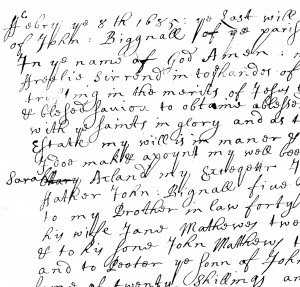 Febry ye 8th 1685: ye Last will
of John: Bignall of ye paris
In ye name of God Amen: 
freelie Surrend in to handes of
tru in the merits of Jesus
& blesed Saviou to obtaine a blesse
with ye Saints in glory and as t
Estate my will is in maner &
I doe make & apoynt my well be
Sarah Acland my Executt
father John: Bignall five
to my Brother in law forty
his wife Jane Mathewes twe
& to his sone John Matthew
and to Peeter ye sonn of John
of twenty Shillings an